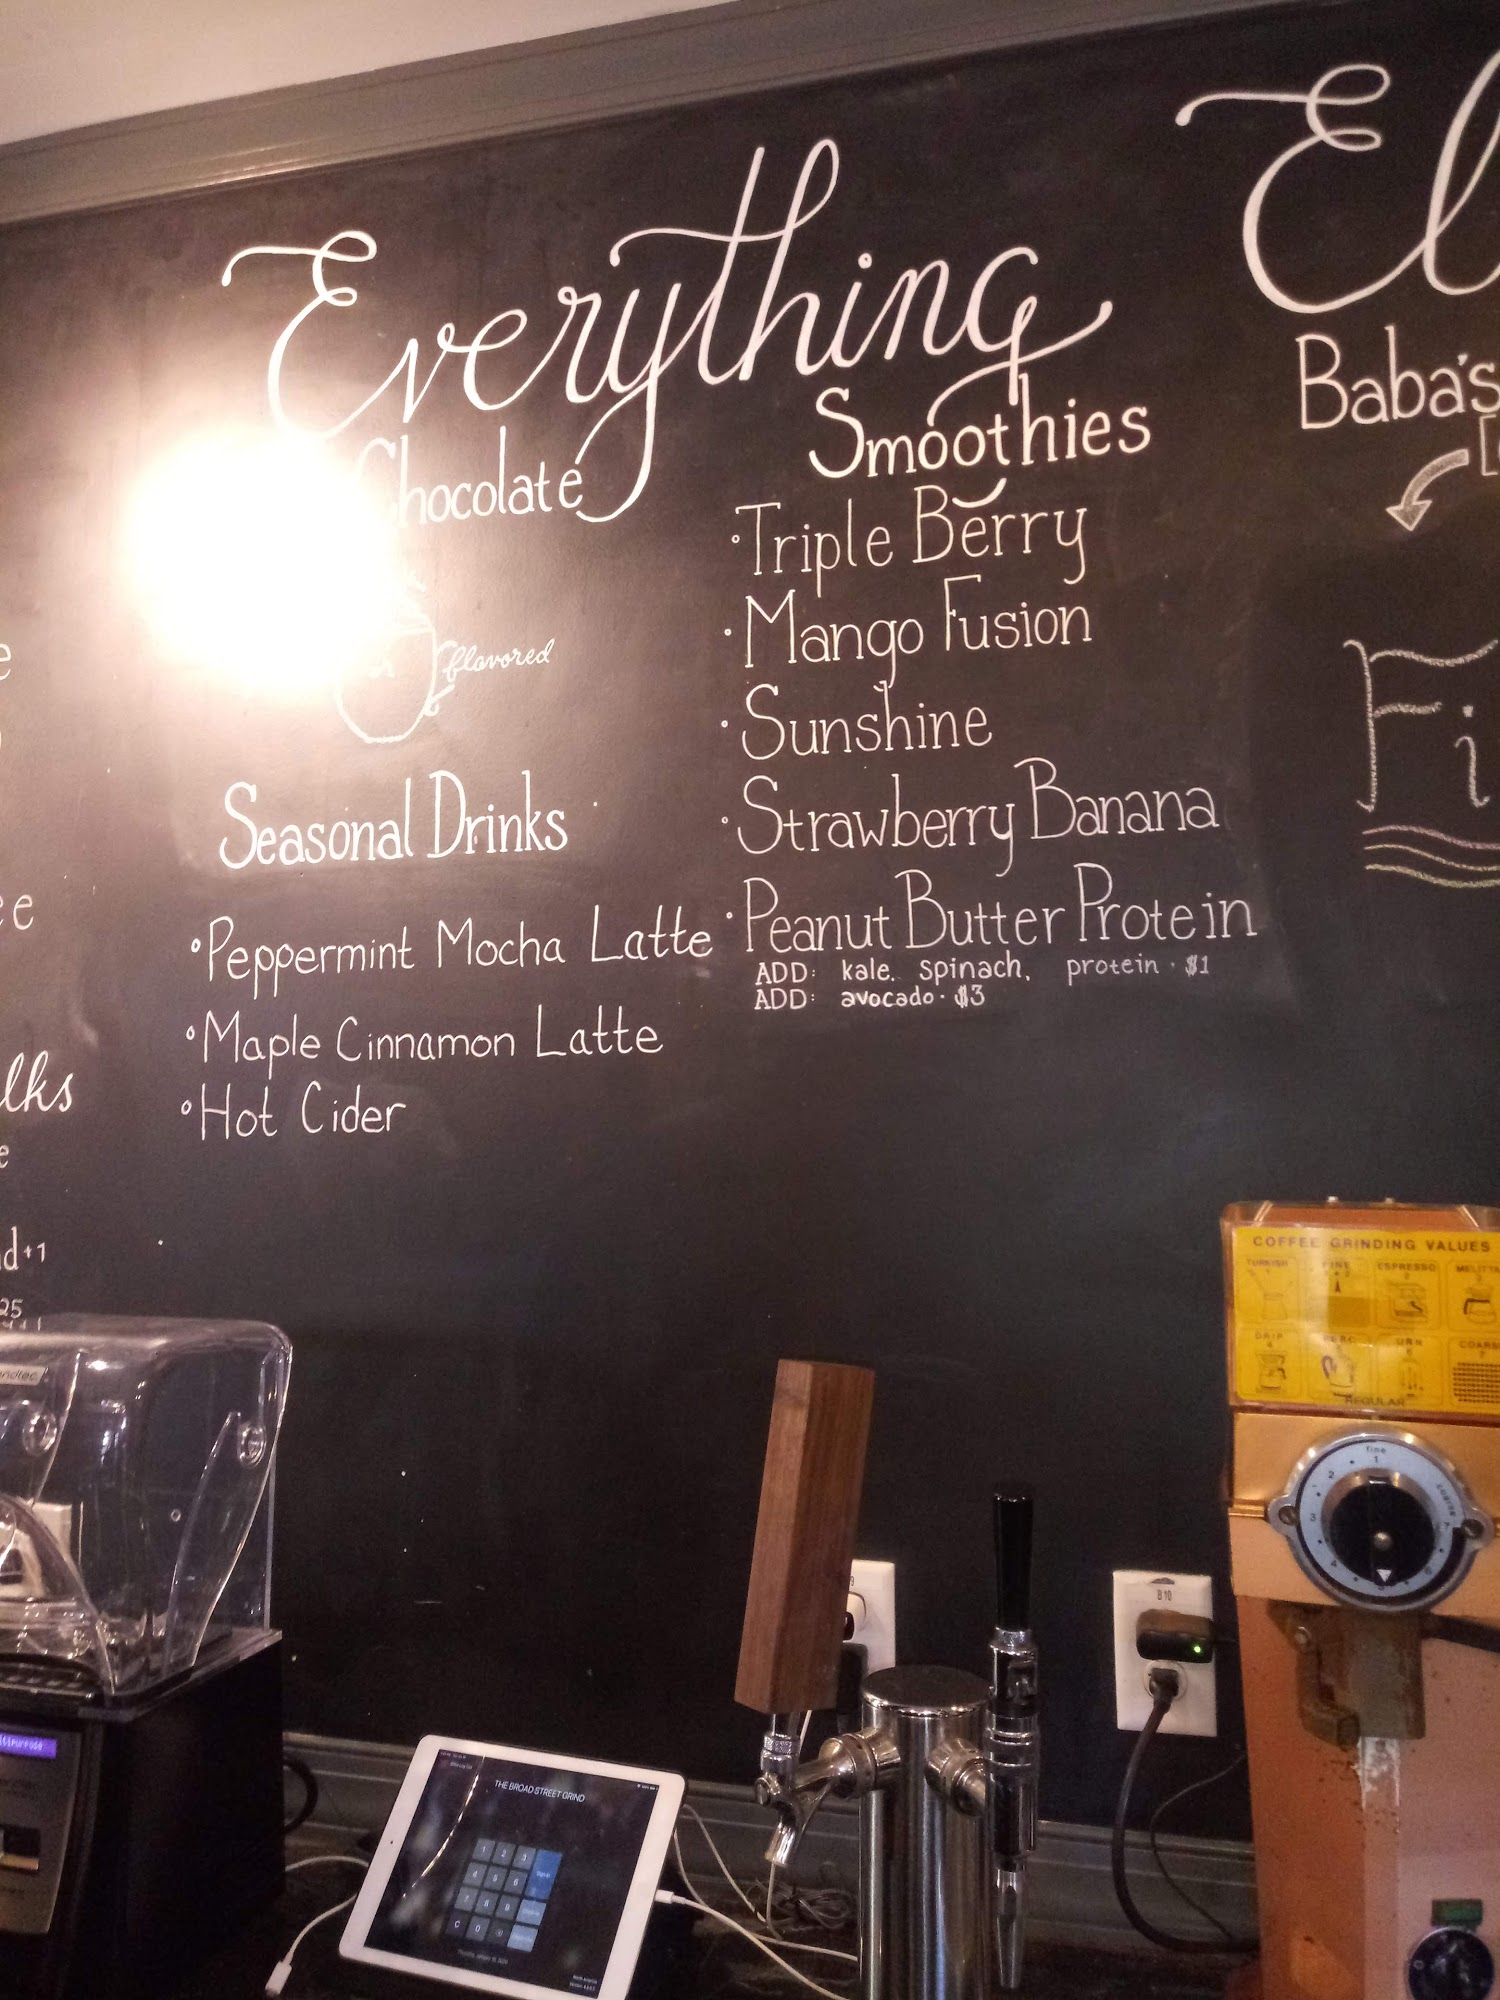 Everything
Chocolate
flavored
Seasonal Drinks
°Peppermint Mocha Latte
°Maple Cinnamon Latte
°Hot Cider
Smoothies
·Triple Berry
·Mango Fusion
·Sunshine
·Strawberry Banana
·Peanut Butter Protein
ADD: kale. spinach, protein · $1
ADD: avocado · $3
El
Baba's
Fi
lks
+1
25
COFFEE GRINDING VALUES
TURKISH FINE ESPRESSO MELITTA
1 2 3
DRIP PERC URN COARSE
4
REGULAR
fine
1
2
3
4
coarse
B10
THE BROAD STREET GRIND
1 2 3
4 5 6
7 8 9
C 0